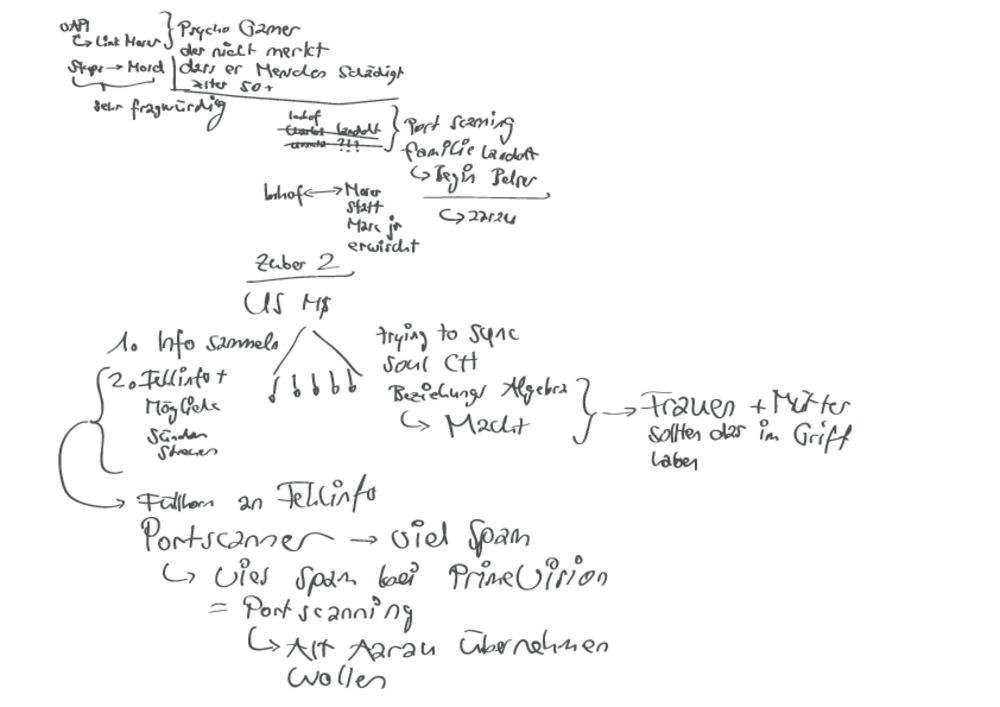 OAPI
↳ Link Marer
Psycho Gamer
der nicht merkt
dass er Menschen schädigt
Alter 50+
→ Mord
sehr fragwürdig
Landolt
?!!
Port scanning
Familie Landolt
↳ Begin
↳
↔ Marer
statt
Marc jr
erwischt
Zuber 2
US M$
1. Info sammeln
2. Fehlinfo +
Mögliche
Sünden
streuen
trying to sync
soul CH
Beziehungs Algebra
↳ Macht
→ Frauen + Mütter
sollten das im Griff
haben
→ Füllhorn an Fehlinfo
Portscanner → viel Spam
↳ vies Spam bei PrimeVision
= Portscanning
↳ Alt Aarau übernehmen
wollen